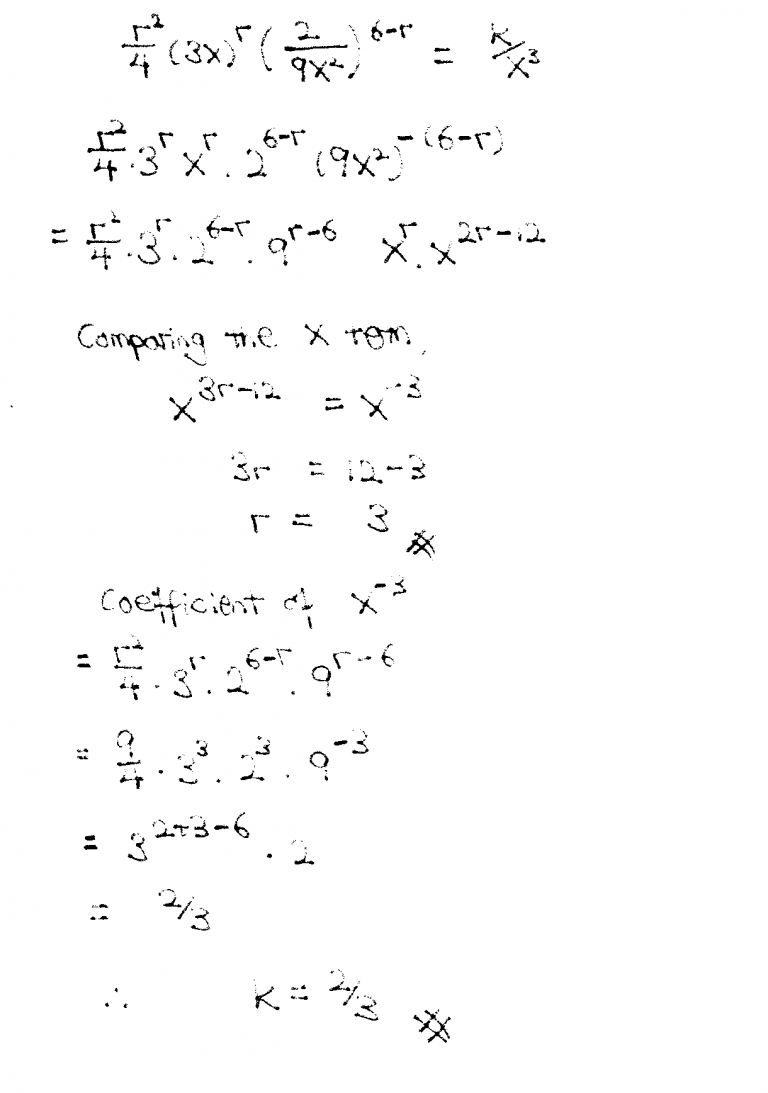 r²/4 (3x)^r (2/9x²)^(6-r) = k/x³
r²/4 · 3^r x^r · 2^(6-r) (9x²)^-(6-r)
= r²/4 · 3^r · 2^(6-r) · 9^(r-6) x^r · x^(2r-12)
Comparing the x term,
x^(3r-12) = x^-3
3r = 12-3
r = 3
Coefficient of x^-3
= r²/4 · 3^r · 2^(6-r) · 9^(r-6)
= 9/4 · 3³ · 2³ · 9^-3
= 3^(2+3-6) · 2
= 2/3
∴ k = 2/3